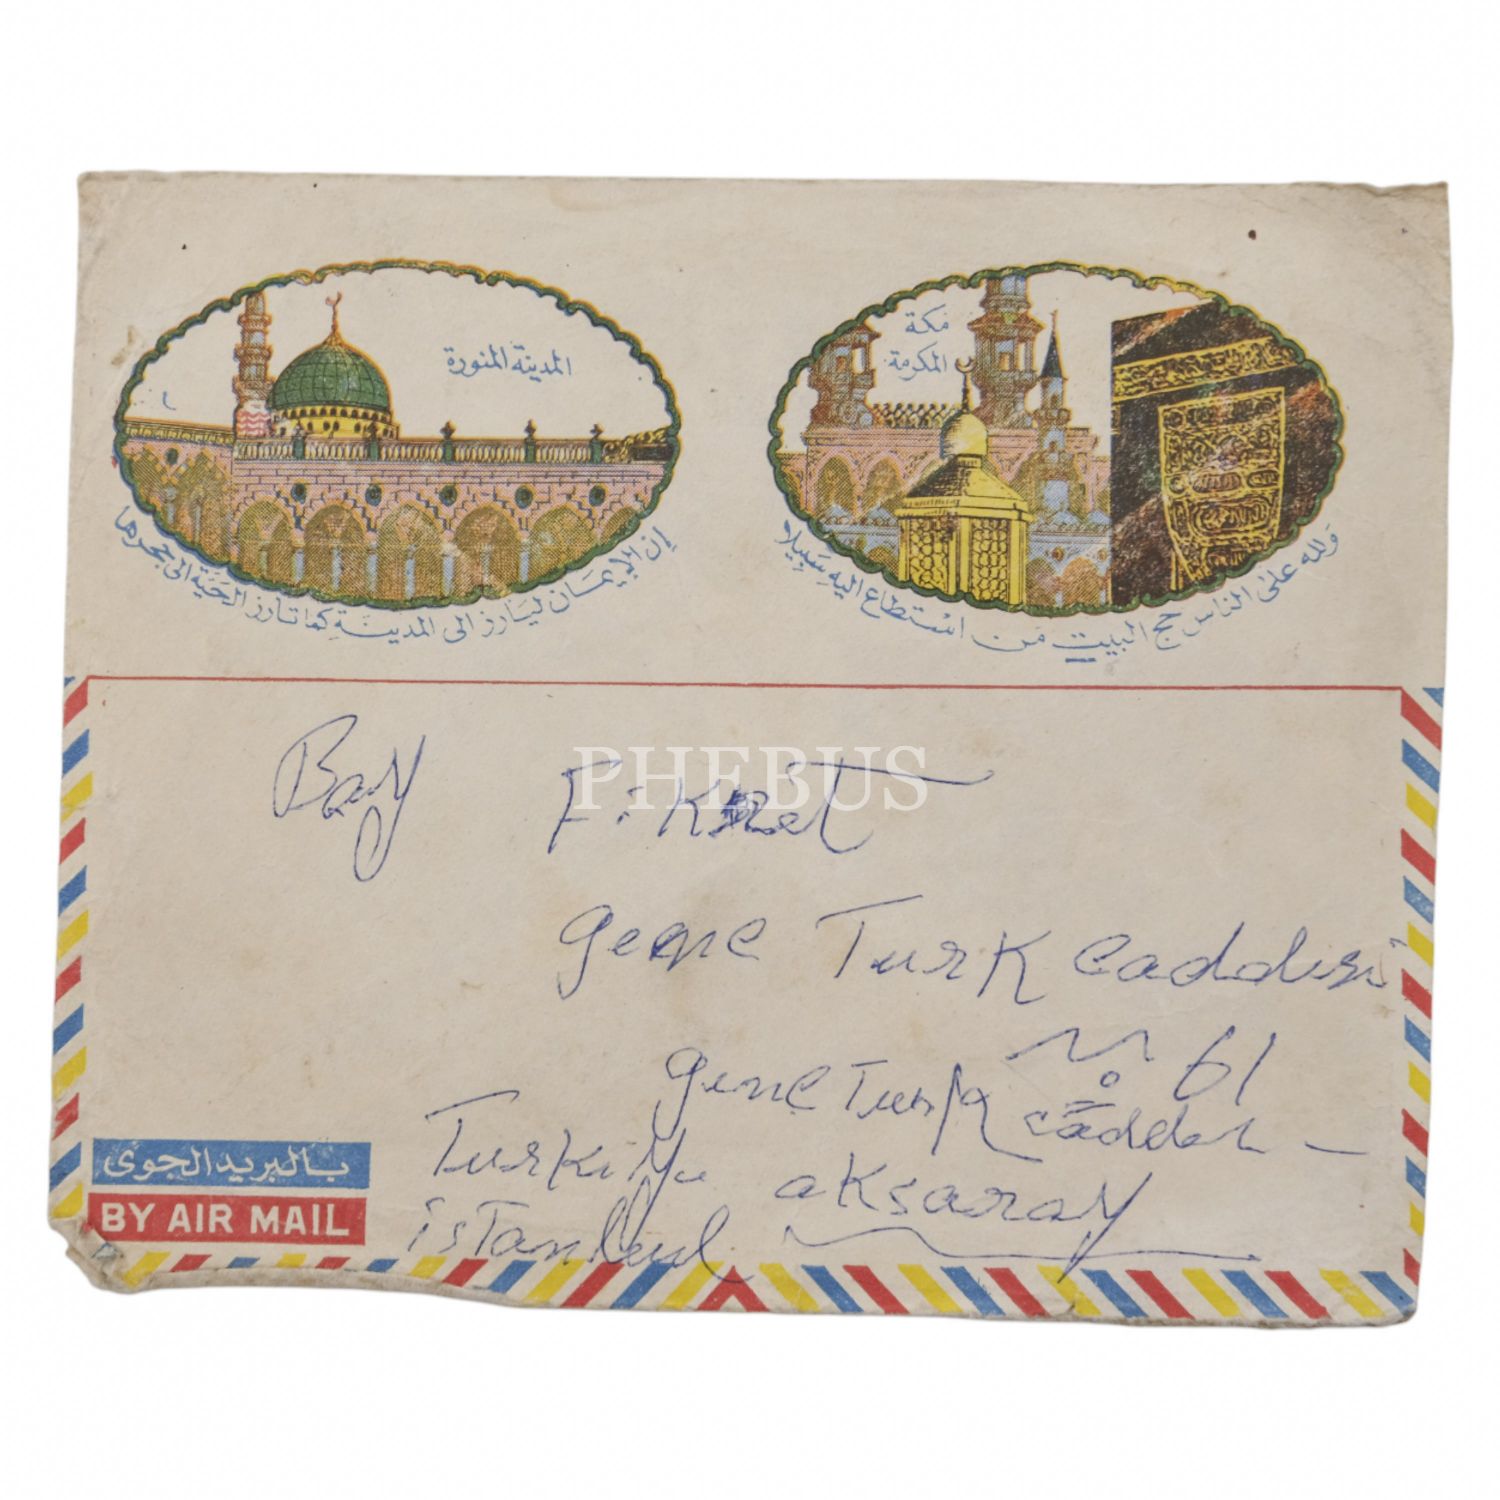 المدينة المنورة
مكة
المكرمة
إن الإيمان ليأرز الى المدينة كما تأرز الحية الى جحرها
ولله على الناس حج البيت من استطاع اليه سبيلا
PHEBUS
Bay Fikret
genç Turk Caddesi
No 61
genç Turk Caddes
Turkiye aksaray
istanbul
بالبريد الجوى
BY AIR MAIL